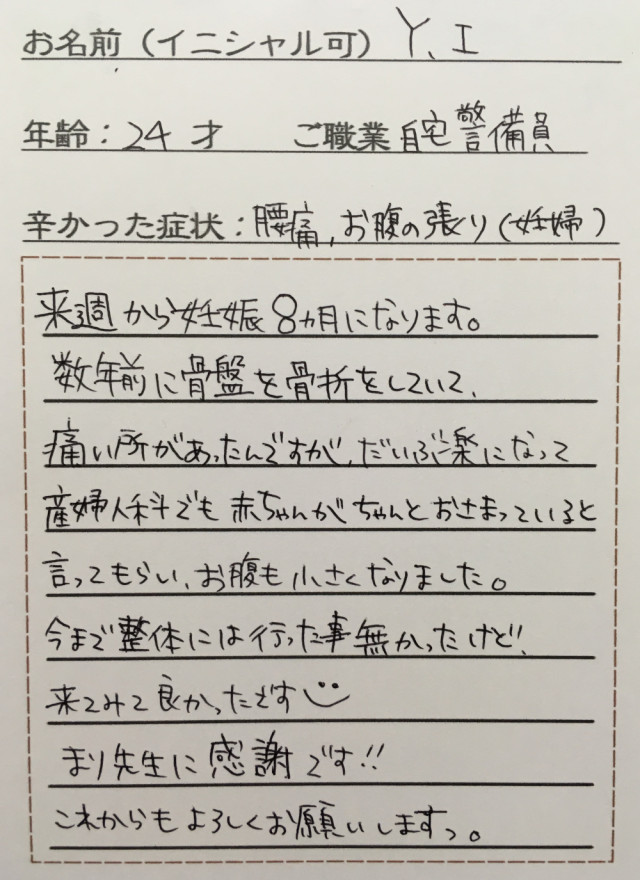 お名前（イニシャル可） Y、I
年齢：24 才 ご職業 自宅警備員
辛かった症状：腰痛，お腹の張り（妊婦）
来週から妊娠8ヵ月になります。
数年前に骨盤を骨折をしていて、
痛い所があったんですが、だいぶ楽になって
産婦人科でも赤ちゃんがちゃんとおさまっていると
言ってもらい、お腹も小さくなりました。
今まで整体には行った事無かったけど、
来てみて良かったです
まり先生に感謝です!!
これからもよろしくお願いしますっ。